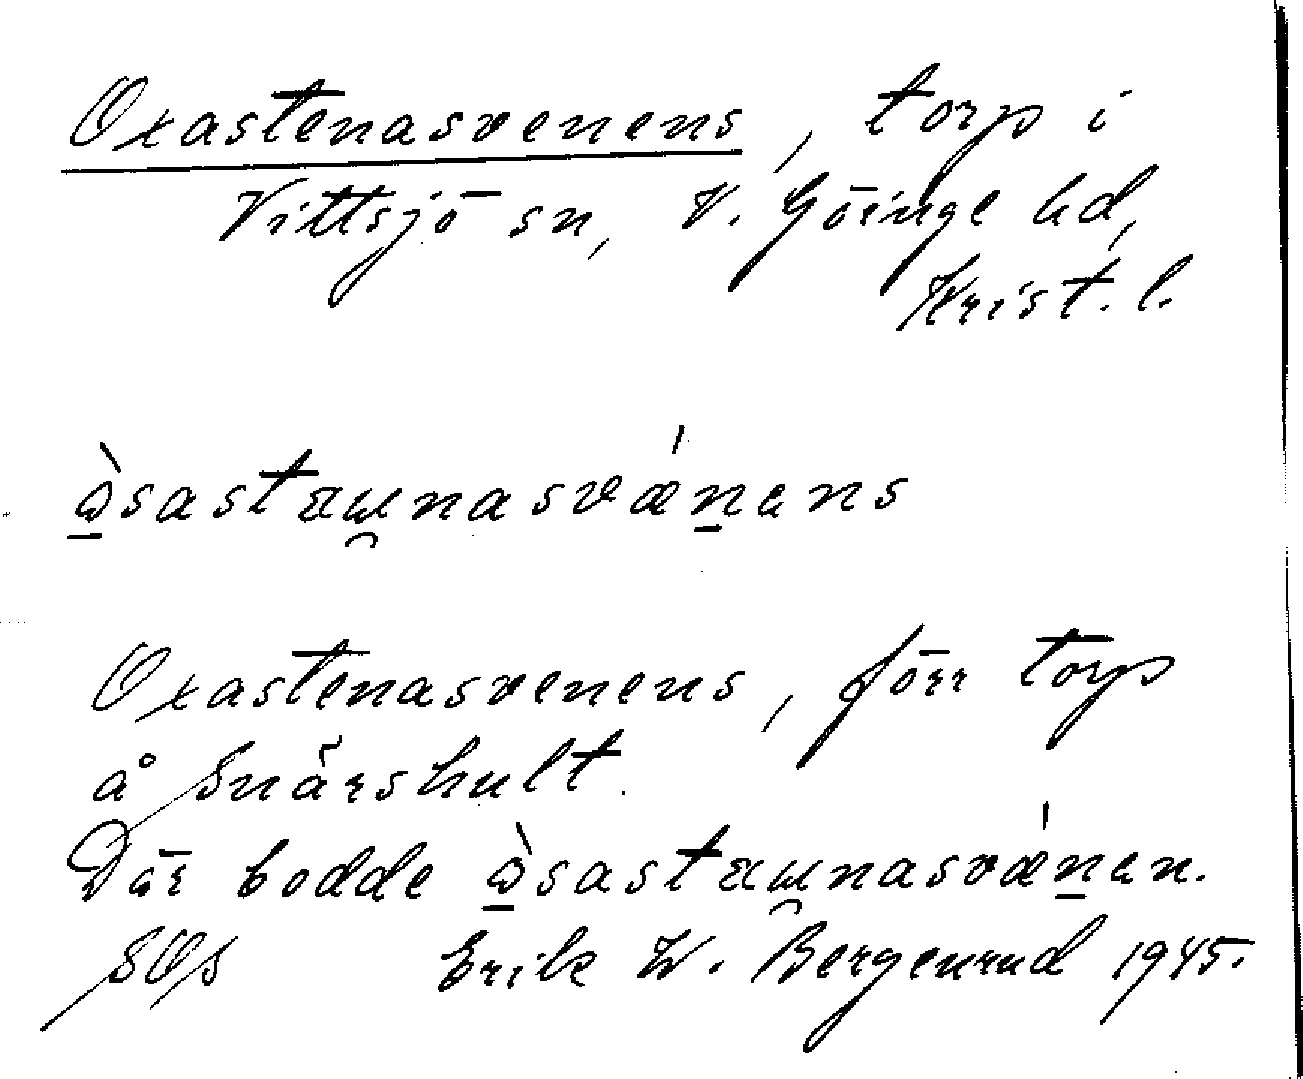 Oxastenasvenens, torp i
Vittsjö sn, V. Göinge hd,
Krist. l.
Oxastenasvenens, förr torp
å Snärshult.
Där bodde
SOS Erik W. Bergenrud 1945.